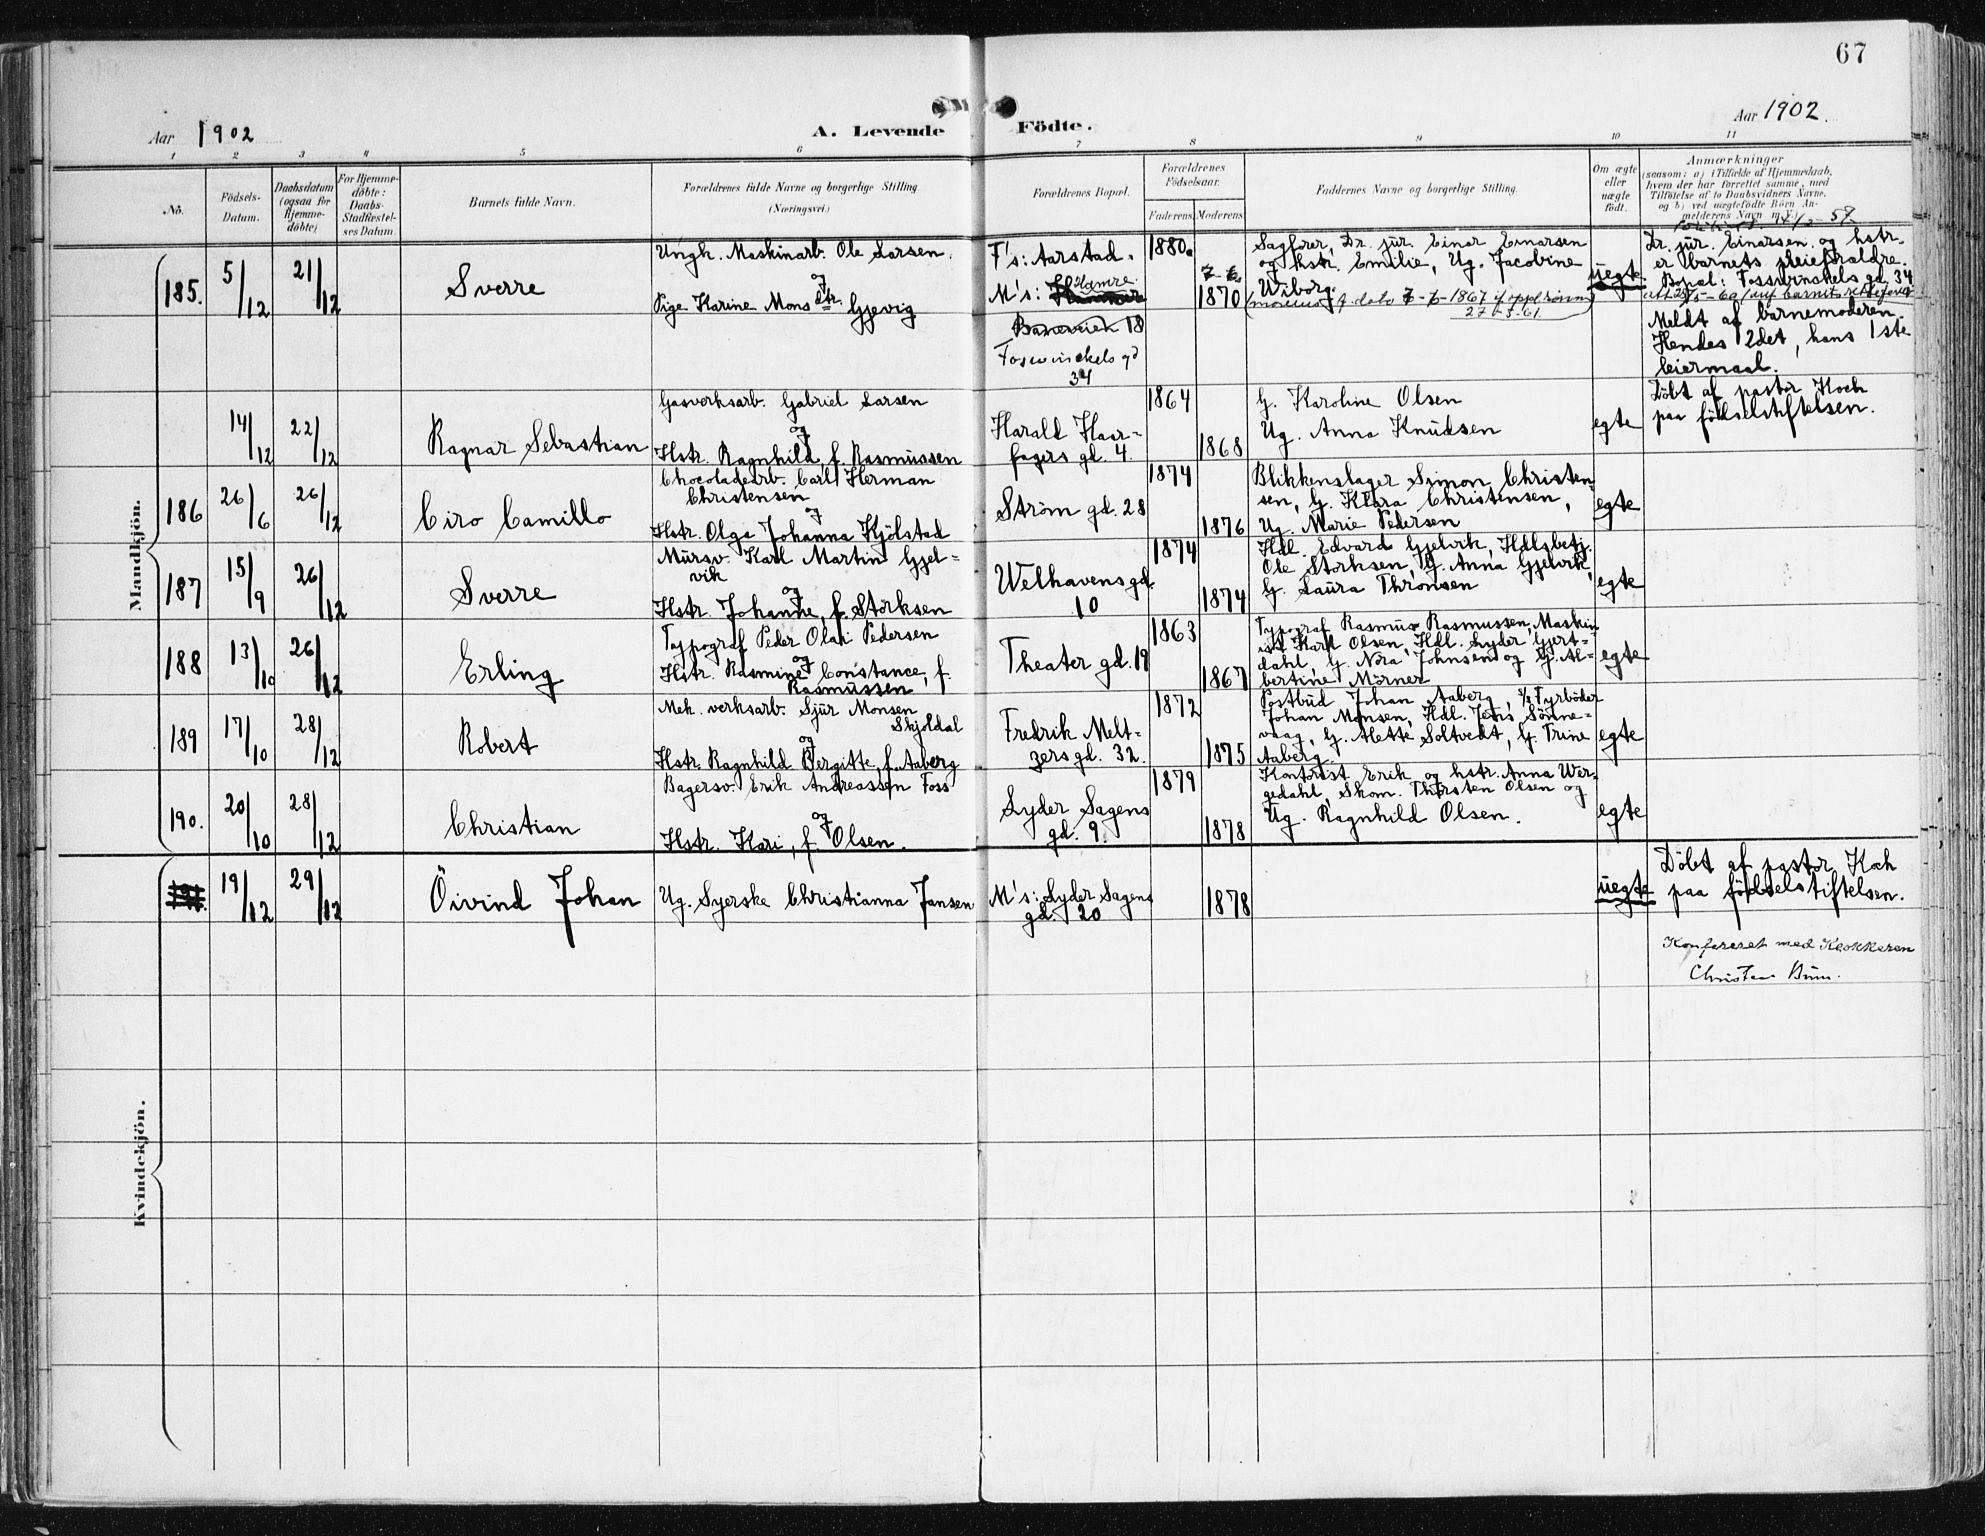 67
Aar 1902
A. Levende Födte.
Aar 1902.
1 2 3 4 5 6 7 8 9 10 11
No.
Födsels-
Datum.
Daabsdatum
(ogsaa for
Hjemme-
döbte)
For Hjemme-
döbte:
Daabs-
Stadfæstel-
ses Datum.
Barnets fulde Navn.
Forældrenes fulde Navne og borgerlige Stilling.
(Næringsvei.)
Forældrenes Bopæl.
Forældrenes
Födselsaar.
Faderens Moderens
Faddernes Navne og borgerlige Stilling.
Om ægte
eller
uægte
födt.
Anmærkninger
(saasom: a) i Tilfælde af Hjemmedaab,
hvem der har forrettet samme, med
Tilföielse af to Daabsvidners Navne,
og b) ved uægtefödte Börn An-
melderens Navn m. V.)
Mandkjön.
185.
5/12
21/12
Sverre
Ungk. Maskinarb. Ole Larsen.
og
Pige Karine Monsdtr. Gjevig
F's: Aarstad.
M's: Hamre
Baneveien 18
Fosswinckels gd
34
1880.
1870
Sagfører, Dr. jur. Einar Einarsen
og hstr. Emilie, Ug. Jacobine
Wiborg.
27-5-61.
uegte
Dr. jur. Einarsen og hstr.
er barnets pleieforældre.
Bopæl: Fosswinckels gd 34
Meldt af barnemoderen.
Hendes 2det, hans 1ste
leiermaal.
14/12
22/12
Ragnar Sebastian
Gasverksarb. Gabriel Larsen
og
Hstr. Ragnhild, f. Rasmussen
Harald Haar-
fagers gd. 4.
1864
1868
G. Karoline Olsen
Ug. Anna Knudsen
egte
Döbt af pastor Koch
paa födselstiftelsen.
186
26/6
26/12
Ciro Camillo
Chocoladearb. Carl Herman
Christensen
og
Hstr. Olga Johanna Kjölstad
Ström gd. 28
1874
1876
Blikkenslager Simon Christen-
sen, G. Klara Christensen,
Ug. Marie Pedersen
egte
187
15/9
26/12
Sverre
Mursv. Karl Martin Gjel-
vik
og
Hstr. Johanne, f. Storksen
Welhavens gd.
10
1874
1874
Hdl. Edvard Gjelvik, Hdlsbetj.
Ole Storksen, G. Anna Gjelvik,
G. Laura Thronsen
egte
188
13/10
26/12
Erling
Typograf Peder Olai Pedersen
og
Hstr. Rasmine Constance, f.
Rasmussen
Theater gd. 19
1863
1867
Typograf Rasmus Rasmussen, Maskin
ist Karl Olsen, Hdl. Lyder Gjert-
dahl, G. Nora Johnsen og G. Al-
bertine Mörner
egte
189
17/10
28/12
Robert
Mek. verksarb. Sjur Monsen
Skjoldal
og
Hstr. Ragnhild Bergitte, f. Aaberg
Fredrik Melt-
zers gd. 32.
1872
1875
Postbud Johan Aaberg, Fyrböder
Johan Monsen, Hdl. Jens Sönne-
vaag, G. Alette Soltvedt, G. Trine
Aaberg.
egte
190.
20/10
28/12
Christian
Bagersv. Erik Andreassen Foss
og
Hstr. Kari, f. Olsen.
Lyder Sagens
gd. 9.
1879
1878
Kontorist Erik og hstr. Anna Wer-
gedahl, Skom. Thorsten Olsen og
Ug. Ragnhild Olsen.
egte
191.
19/12
29/12
Öivind Johan
Ug. Syerske Christianna Jansen
M's: Lyder Sagens
gd. 20
1878
uegte
Döbt af pastor Koch
paa födselstiftelsen.
Konfereret med Klokkeren
Kvindekjön.